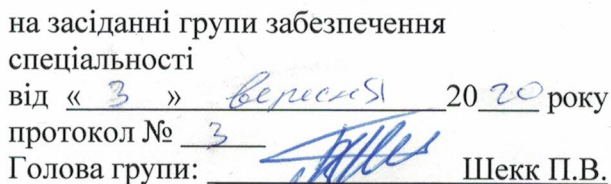 на засіданні групи забезпечення
спеціальності
від « 3 » вересня 2020 року
протокол № 3
Голова групи: Шекк П.В.